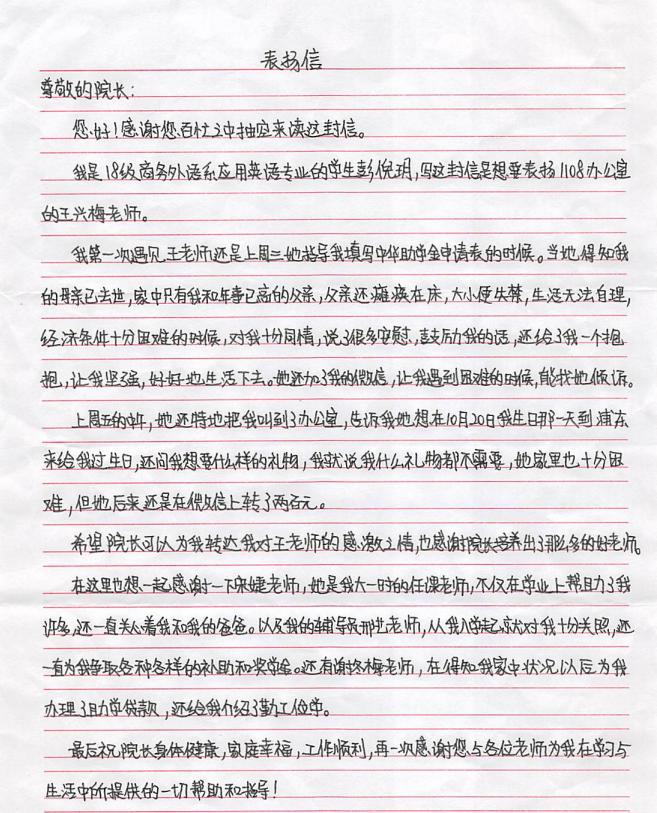 表扬信
尊敬的院长:
您好!感谢您百忙之中抽空来读这封信。
我是18级商务外语系应用英语专业的学生彭倪玥,写这封信是想要表扬1108办公室
的王兴梅老师。
我第一次遇见王老师还是上周三她指导我填写中华助学金申请表的时候。当她得知我
的母亲已去世,家中只有我和年事已高的父亲,父亲还瘫痪在床,大小便失禁,生活无法自理,
经济条件十分困难的时候,对我十分同情,说了很多安慰,鼓励我的话,还给了我一个抱
抱,让我坚强,好好地生活下去。她还加了我的微信,让我遇到困难的时候,能找她倾诉。
上周五的中午,她还特地把我叫到了办公室,告诉我她想在10月20日我生日那一天到浦东
来给我过生日,还问我想要什么样的礼物,我就说我什么礼物都不需要,她家里也十分困
难,但她后来还是在微信上转了两百元。
希望院长可以为我转达我对王老师的感激之情,也感谢院长培养出了那么多的好老师。
在这里也想一起感谢一下婕老师,她是我大一时的任课老师,不仅在学业上帮助了我
许多,还一直关心着我和我的爸爸。以及我的辅导员邢老师,从我入学起就对我十分关照,还
一直为我争取各种各样的补助和奖学金。还有谢梅老师,在得知我家中状况以后为我
办理了助学贷款,还给我介绍了勤工俭学。
最后祝院长身体健康,家庭幸福,工作顺利,再一次感谢您与各位老师为我在学习与
生活中所提供的一切帮助和指导!